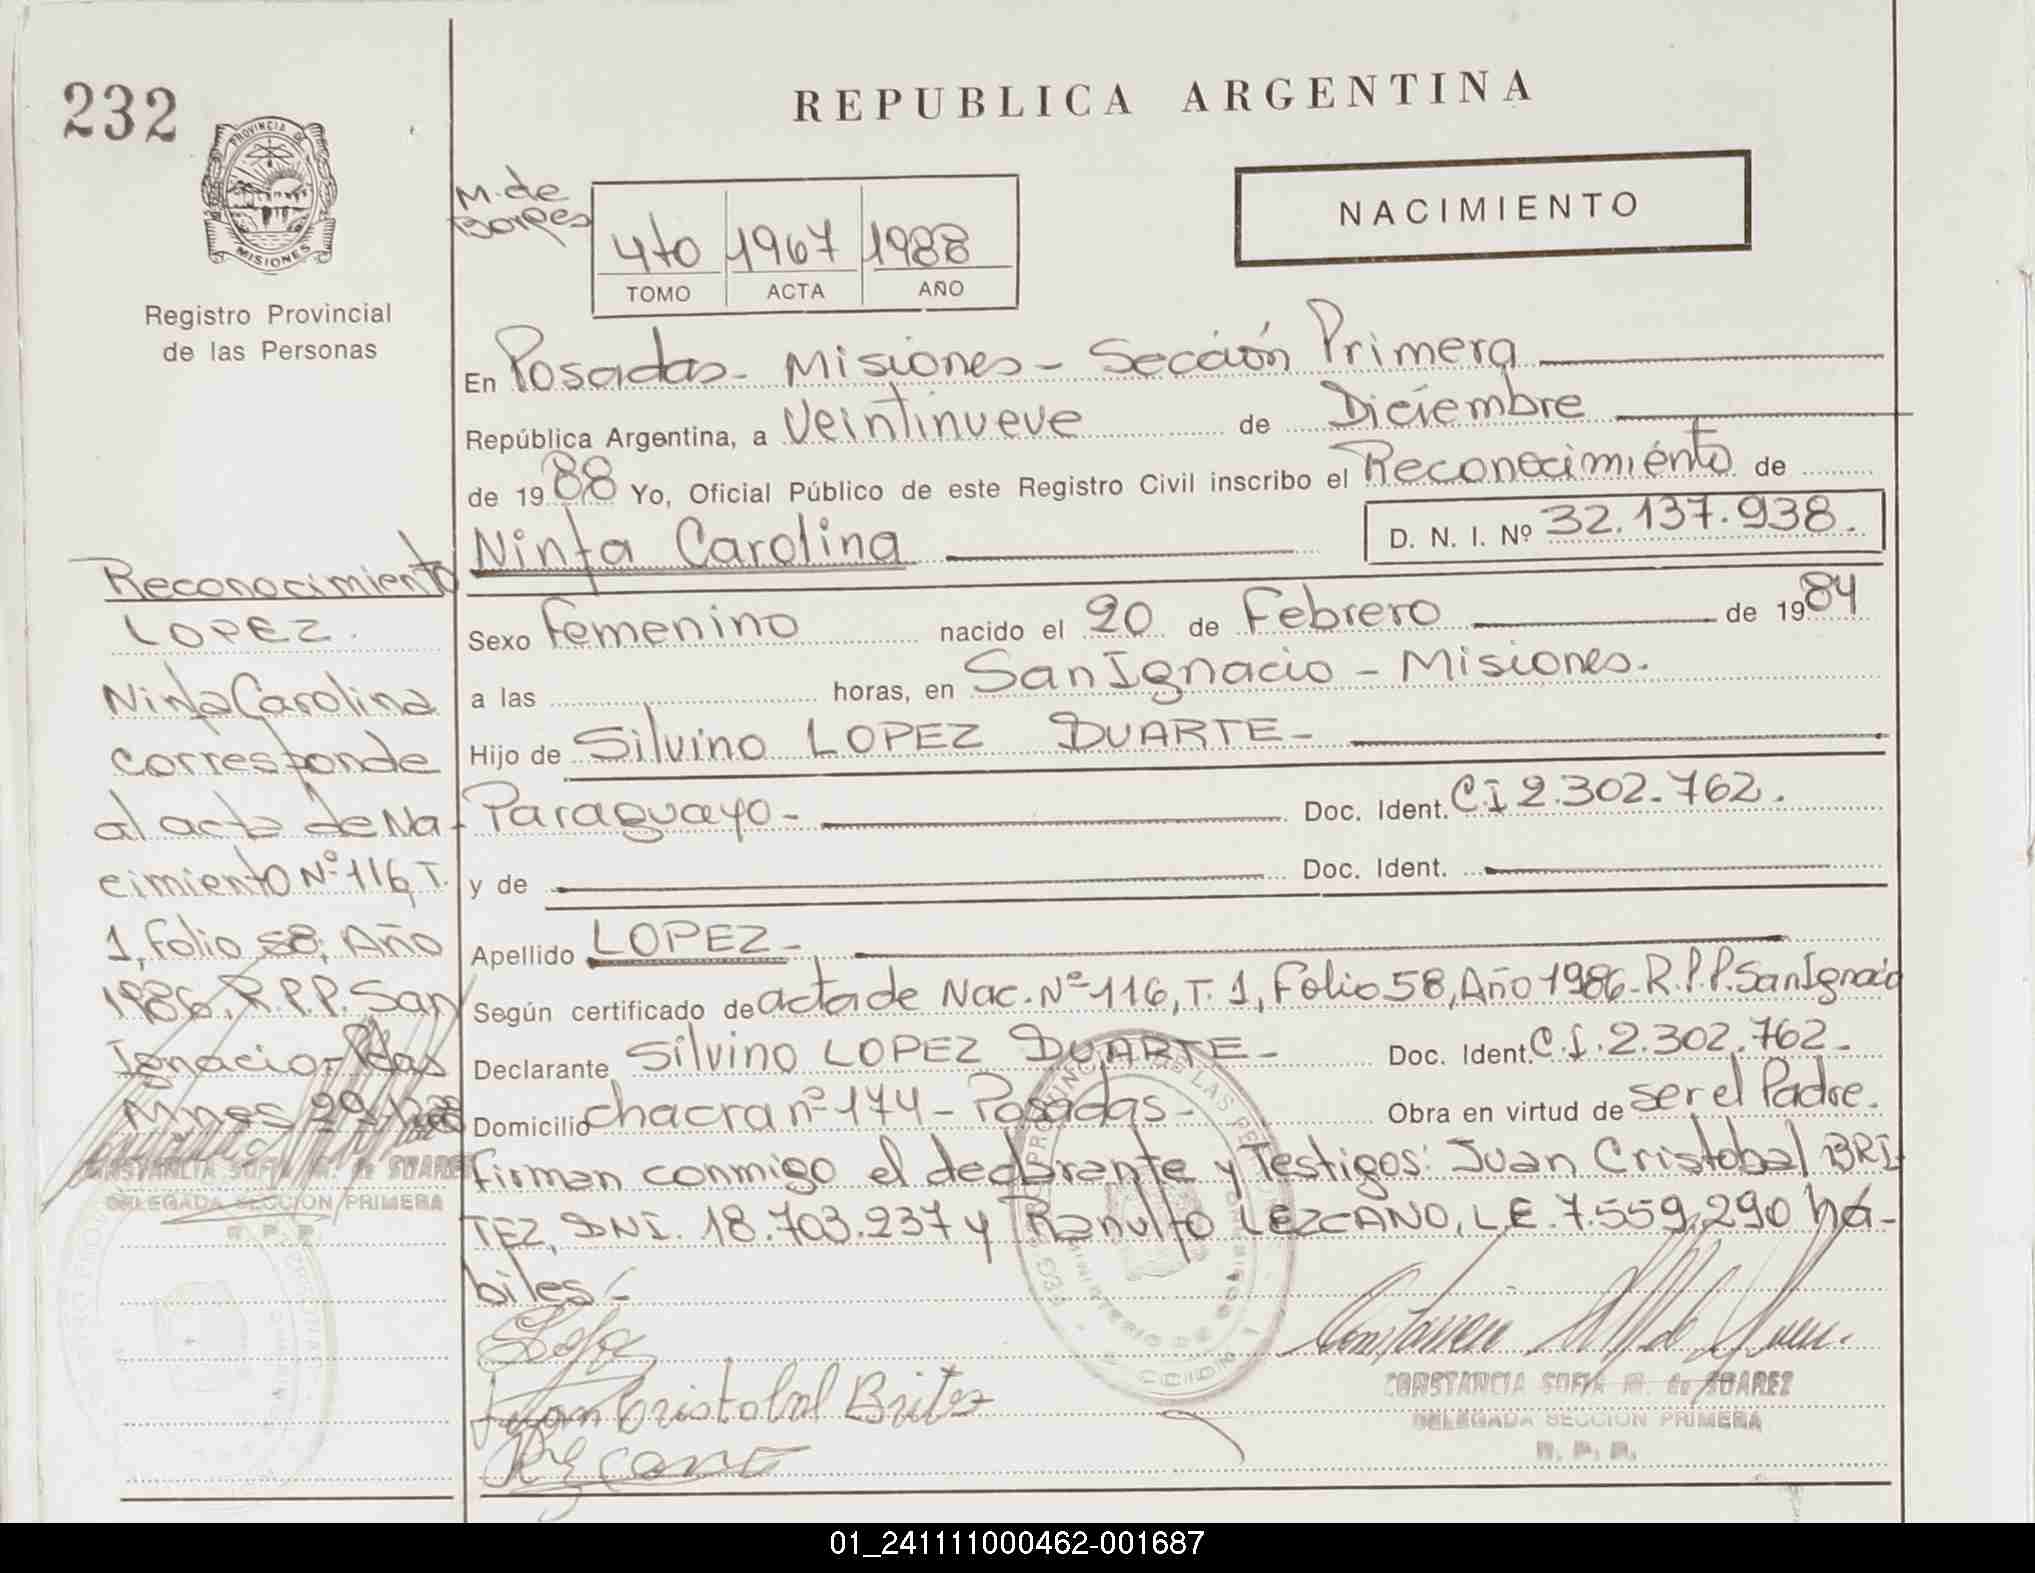 232
PROVINCIA DE
MISIONES
Registro Provincial
de las Personas
REPUBLICA ARGENTINA
M. de
Borges
4to 1967 1988
TOMO ACTA AÑO
NACIMIENTO
En Posadas - Misiones - Sección Primera
República Argentina, a Veintinueve de Diciembre
de 1988 Yo, Oficial Público de este Registro Civil inscribo el Reconocimiento de
Ninfa Carolina D. N. I. Nº 32.137.938.
Sexo Femenino nacido el 20 de Febrero de 1984
a las horas, en San Ignacio - Misiones.
Hijo de Silvino LOPEZ DUARTE -
Paraguayo - Doc. Ident. C.I 2.302.762.
y de Doc. Ident.
Apellido LOPEZ -
Según certificado de acta de Nac. Nº 116, T. 1, Folio 58, Año 1986 - R.P.P. San Ignacio
Declarante Silvino LOPEZ DUARTE - Doc. Ident. C.I. 2.302.762 -
Domicilio chacra nº 174 - Posadas - Obra en virtud de ser el Padre.
Firman conmigo el declarante y Testigos: Juan Cristobal BRI
TEZ, DNI. 18.703.237 y Ranulfo LEZCANO, L.E. 7.559.290 há-
biles -
Juan Cristobal Britez
CONSTANCIA SOFIA M. de SUAREZ
DELEGADA SECCION PRIMERA
R. P. P.
Reconocimiento
LOPEZ.
Ninfa Carolina
corresponde
al acta de Na-
cimiento Nº 116, T.
1, Folio 58, Año
1986, R.P.P. San
Ignacio - Pdas
Mnes 29
CONSTANCIA SOFIA M. de SUAREZ
DELEGADA SECCION PRIMERA
R. P. P.
01_241111000462-001687